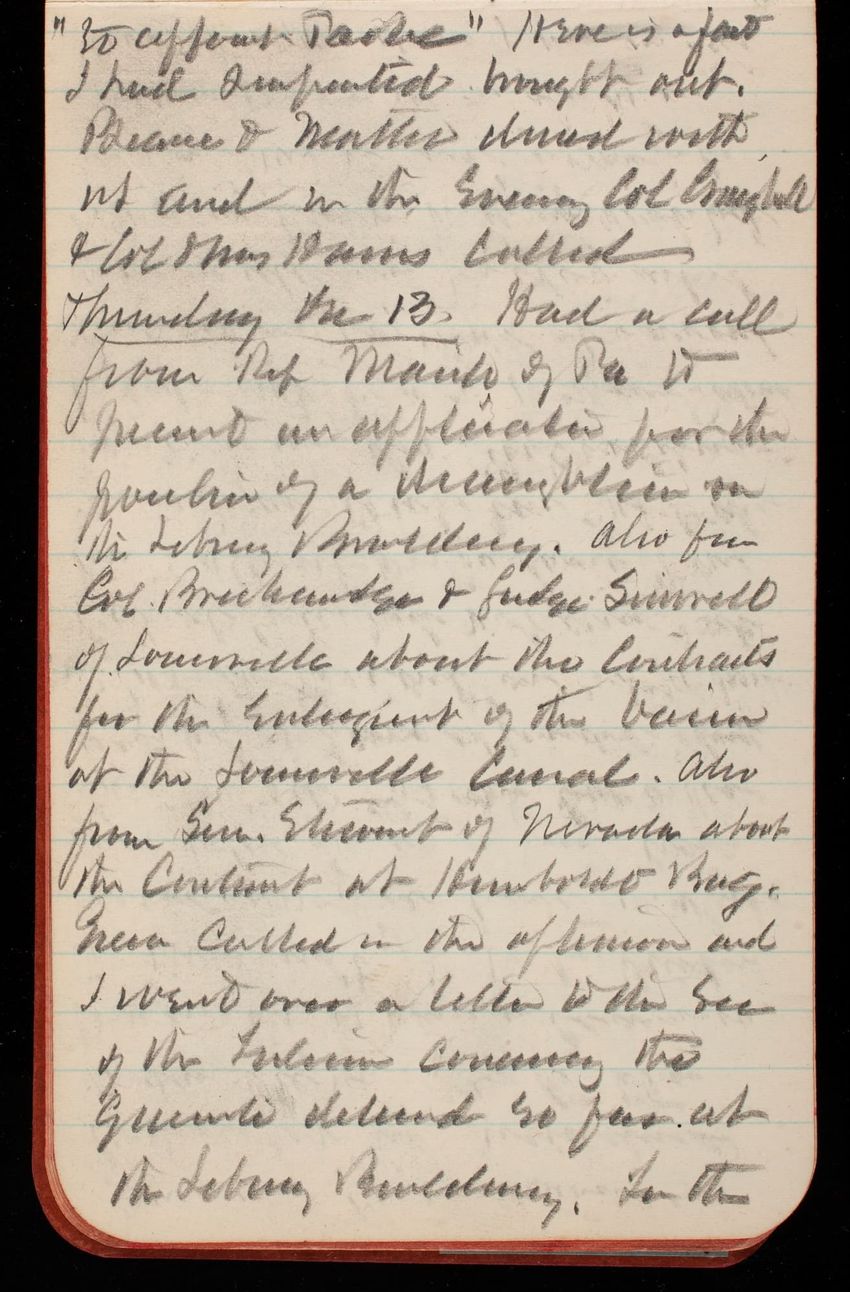 to appoint Poole" Here is a fact
I had suspected brought out.
& Mattie dined with
us and in the Evening Col
& Col & Mrs Harris Called
Thursday the 13. Had a call
from Rep of Pa to
present an application for the
position of a draughtsman on
the Library Building. Also from
Col. Breckenridge & Judge
of Louisville about the Contracts
for the Enlargement of the Basin
at the Louisville Canal. Also
from Sen. Stewart of Nevada about
the Contract at Humboldt Bay.
Green Called in the afternoon and
I went over a letter to the Sec
of the Interior Concerning the
Granite delivered so far at
the Library Building. In the